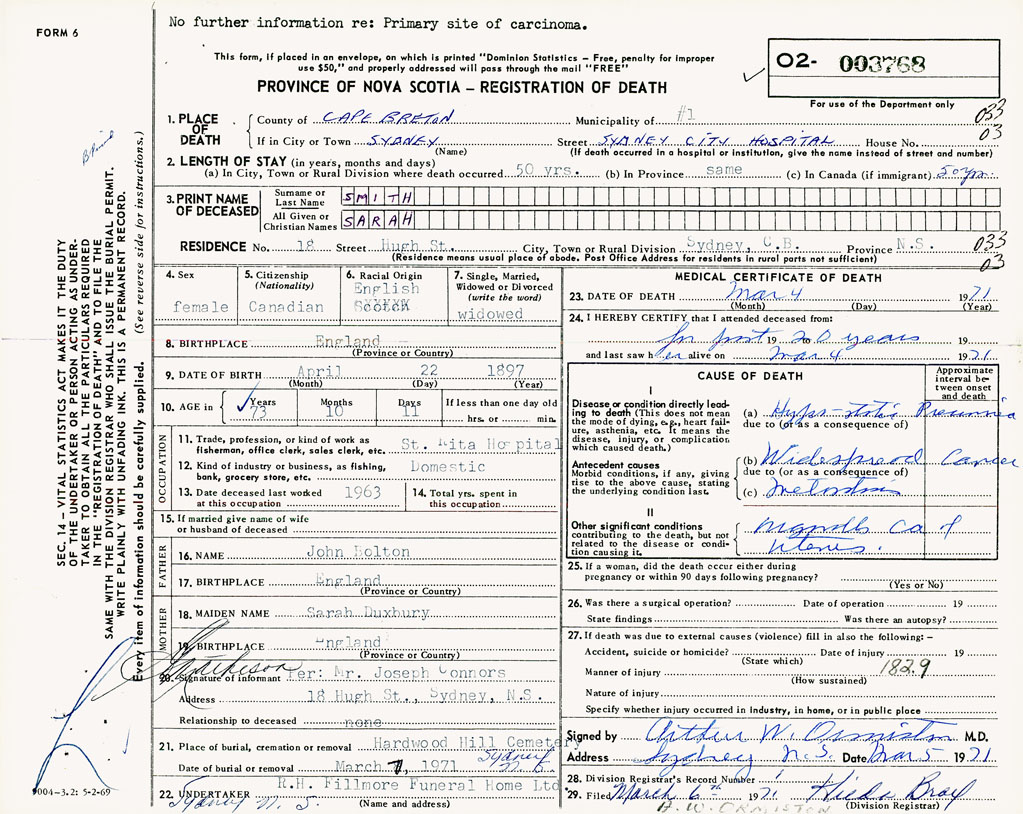 No further information re: Primary site of carcinoma.
FORM 6
This form, if placed in an envelope, on which is printed "Dominion Statistics – Free, penalty for improper
use $50," and properly addressed will pass through the mail "FREE"
PROVINCE OF NOVA SCOTIA – REGISTRATION OF DEATH
O2- 003768
For use of the Department only
1. PLACE OF DEATH County of CAPE BRETON Municipality of #1 033
If in City or Town SYDNEY Street SYDNEY CITY HOSPITAL House No. 03
(Name) (If death occurred in a hospital or institution, give the name instead of street and number)
2. LENGTH OF STAY (in years, months and days)
(a) In City, Town or Rural Division where death occurred 50 yrs. (b) In Province same (c) In Canada (if immigrant) 50 yrs
3. PRINT NAME OF DECEASED Surname or Last Name SMITH
All Given or Christian Names SARAH
RESIDENCE No. 18 Street Hugh St. City, Town or Rural Division Sydney, C.B. Province N.S. 033
(Residence means usual place of abode. Post Office Address for residents in rural parts not sufficient) 03
4. Sex female
5. Citizenship (Nationality) Canadian
6. Racial Origin English
7. Single, Married, Widowed or Divorced (write the word) widowed
8. BIRTHPLACE England
(Province or Country)
9. DATE OF BIRTH April 22 1897
(Month) (Day) (Year)
10. AGE in Years 73 Months 10 Days 11 If less than one day old hrs. or min.
OCCUPATION
11. Trade, profession, or kind of work as fisherman, office clerk, sales clerk, etc. St. Rita Hospital
12. Kind of industry or business, as fishing, bank, grocery store, etc. Domestic
13. Date deceased last worked at this occupation 1963
14. Total yrs. spent in this occupation
15. If married give name of wife or husband of deceased
FATHER
16. NAME John Bolton
17. BIRTHPLACE England
(Province or Country)
MOTHER
18. MAIDEN NAME Sarah Duxbury
19. BIRTHPLACE England
(Province or Country)
20. Signature of informant Per: Mr. Joseph Connors
Address 18 Hugh St., Sydney, N.S.
Relationship to deceased none
21. Place of burial, cremation or removal Hardwood Hill Cemetery
Sydney N.S.
Date of burial or removal March 7, 1971
22. UNDERTAKER R.H. Fillmore Funeral Home Ltd
Sydney N.S. (Name and address)
MEDICAL CERTIFICATE OF DEATH
23. DATE OF DEATH Mar 4 1971
(Month) (Day) (Year)
24. I HEREBY CERTIFY that I attended deceased from:
for past 19 20 years 19
and last saw her alive on Mar 4 1971
CAUSE OF DEATH
Approximate interval between onset and death
I
Disease or condition directly leading to death (This does not mean the mode of dying, e.g., heart failure, asthenia, etc. It means the disease, injury, or complication which caused death.)
(a) Hypo-static Pneumonia
due to (or as a consequence of)
Antecedent causes
Morbid conditions, if any, giving rise to the above cause, stating the underlying condition last.
(b) Widespread Cancer
due to (or as a consequence of)
(c) Metastasis
II
Other significant conditions contributing to the death, but not related to the disease or condition causing it.
Ca of
Uterus.
25. If a woman, did the death occur either during pregnancy or within 90 days following pregnancy?
(Yes or No)
26. Was there a surgical operation? Date of operation 19
State findings Was there an autopsy?
27. If death was due to external causes (violence) fill in also the following: –
Accident, suicide or homicide? Date of injury 19
(State which)
Manner of injury 1829
(How sustained)
Nature of injury
Specify whether injury occurred in industry, in home, or in public place
Signed by Arthur W. Ormiston M.D.
Address Sydney N.S. Date Mar 5 1971
28. Division Registrar's Record Number
29. Filed March 6th 1971 Hilda Bray
A.W. ORMISTON (Division Registrar)
SEC. 14 – VITAL STATISTICS ACT MAKES IT THE DUTY
OF THE UNDERTAKER OR PERSON ACTING AS UNDERTAKER
TO OBTAIN ALL THE PARTICULARS REQUIRED
IN THE "REGISTRATION OF DEATH" AND TO FILE THE
SAME WITH THE DIVISION REGISTRAR WHO SHALL ISSUE THE BURIAL PERMIT.
WRITE PLAINLY WITH UNFADING INK. THIS IS A PERMANENT RECORD.
Every item of information should be carefully supplied. (See reverse side for instructions.)
9004-3.2: 5-2-69